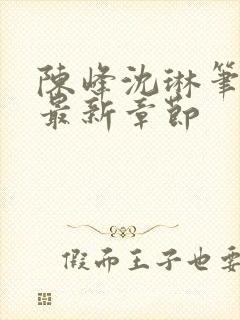 陳峰沈琳筆
最新章節
假而王子也要